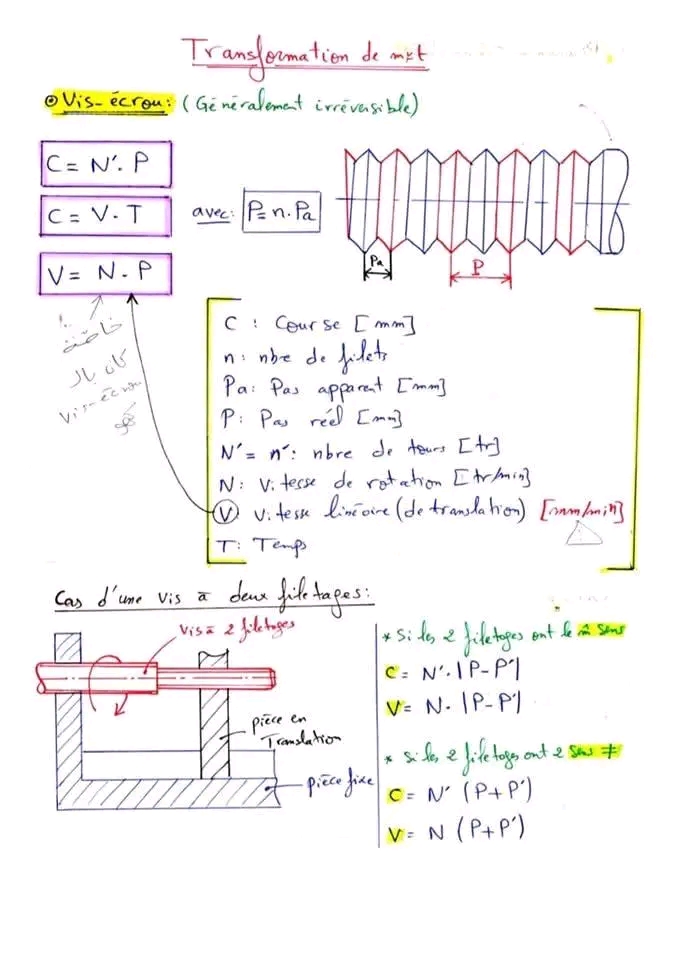 Transformation de mvt
Vis-écrou: (Généralement irréversible)
C = N'. P
C = V. T
avec: P = n. Pa
V = N. P
Pa
P
خاصة !
كان بال
Vis-écrou
C : Course [mm]
n: nbre de filets
Pa: Pas apparent [mm]
P: Pas réel [mm]
N' = n': nbre de tours [tr]
N: Vitesse de rotation [tr/min]
V vitesse linéaire (de translation) [mm/min]
T: Temps
Cas d'une vis à deux filetages:
Vis à 2 filetages
pièce en
Translation
pièce fixe
* Si les 2 filetages ont le m̂ sens
C = N'. |P - P'|
V = N. |P - P'|
* Si les 2 filetages ont 2 sens ≠
C = N' (P + P')
V = N (P + P')